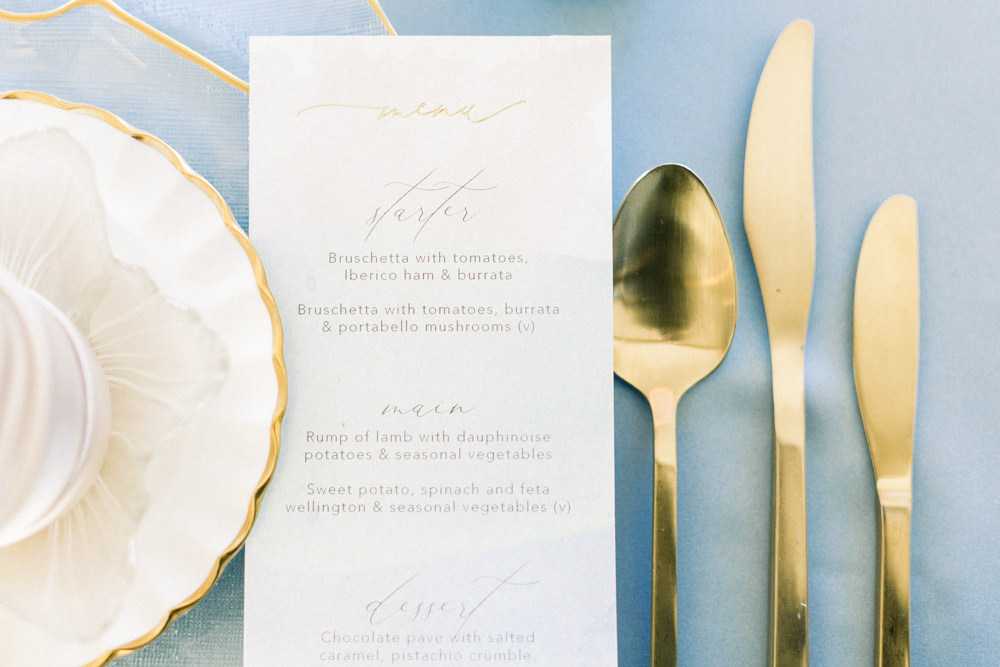 menu
starter
Bruschetta with tomatoes,
Iberico ham & burrata
Bruschetta with tomatoes, burrata
& portabello mushrooms (v)
main
Rump of lamb with dauphinoise
potatoes & seasonal vegetables
Sweet potato, spinach and feta
wellington & seasonal vegetables (v)
dessert
Chocolate pave with salted
caramel, pistachio crumble,